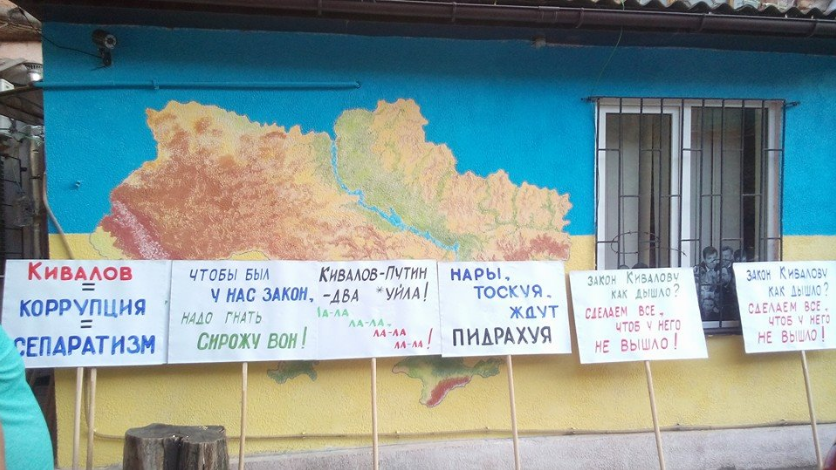 КИВАЛОВ
=
КОРРУПЦИЯ
=
СЕПАРАТИЗМ
ЧТОБЫ БЫЛ
У НАС ЗАКОН,
НАДО ГНАТЬ
СИРОЖУ ВОН!
КИВАЛОВ-ПУТИН
-ДВА *УЙЛА!
ЛА-ЛА
ЛА-ЛА.
ЛА-ЛА
ЛА-ЛА!
НАРЫ,
ТОСКУЯ,
ЖДУТ
ПИДРАХУЯ
ЗАКОН КИВАЛОВУ
КАК ДЫШЛО?
СДЕЛАЕМ ВСЕ,
ЧТОБ У НЕГО
НЕ ВЫШЛО!
ЗАКОН КИВАЛОВУ
КАК ДЫШЛО?
СДЕЛАЕМ ВСЕ,
ЧТОБ У НЕГО
НЕ ВЫШЛО!